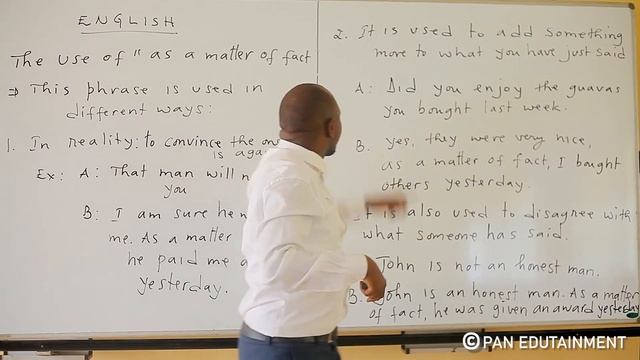 ENGLISH
The use of " as a matter of fact
⇒ This phrase is used in
different ways:
1. In reality: to convince the one
is aga
Ex: A: That man will n
you
B: I am sure he
me. As a matter
he paid me a
yesterday.
2. It is used to add something
more to what you have just said
A: Did you enjoy the guavas
you bought last week.
B. Yes, they were very nice,
as a matter of fact, I bought
others yesterday.
It is also used to disagree with
what someone has said.
John is not an honest man.
B. John is an honest man. As a matter
of fact, he was given an award yesterday
© PAN EDUTAINMENT